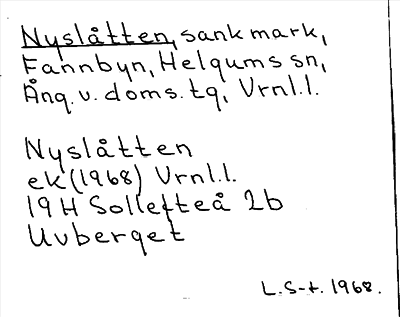 Nyslåtten, sank mark,
Fannbyn, Helgums sn,
Ång. v. doms. tg, Vrnl.l.
Nyslåtten
ek (1968) Vrnl.l.
19 H Sollefteå 2b
Uvberget
L.S-t. 1968.